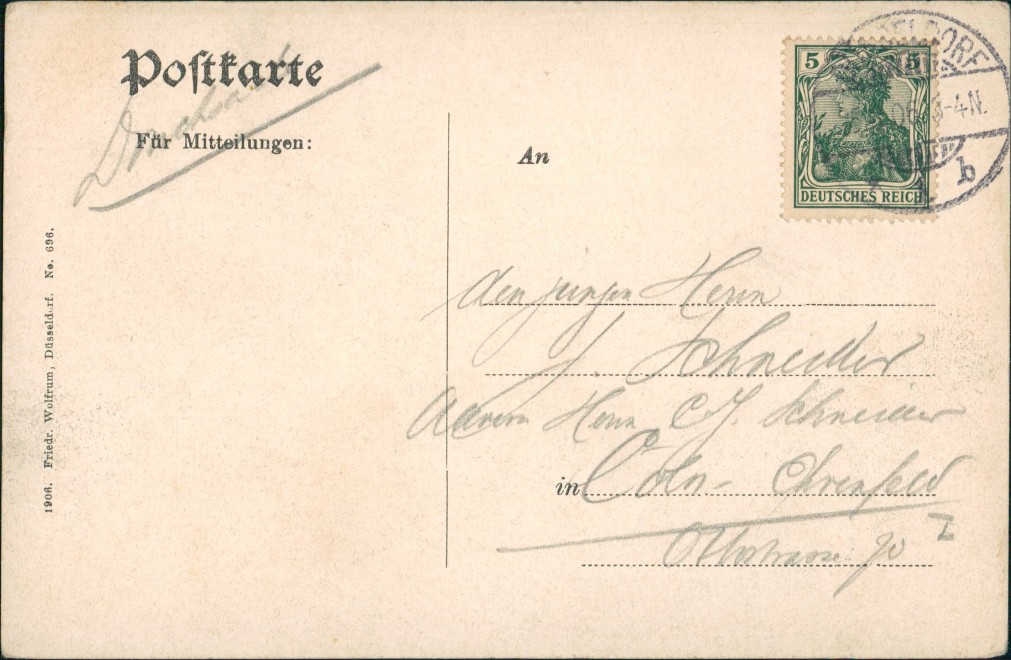 Postkarte
Drucksache
Für Mitteilungen:
1906. Friedr. Wolfrum, Düsseldorf. No. 696.
5 5
DEUTSCHES REICH
3-4N.
b
An
den jungen Herrn
J. Schneider
Herrn C. J. Schneider
in Cöln-Ehrenfeld
I
Ottostrasse 90